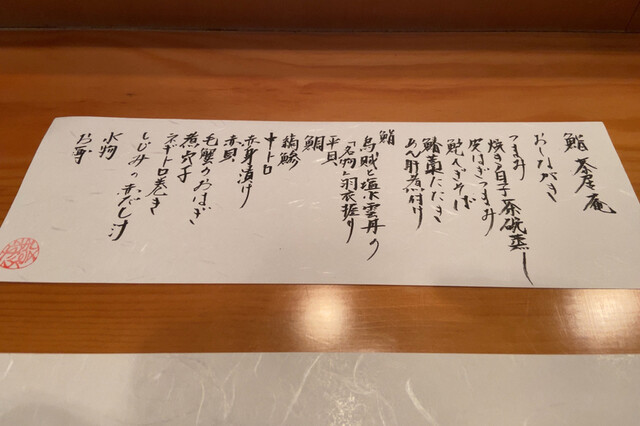 鮨 茶屋庵
おしながき
つまみ
焼き白子茶碗蒸し
皮はぎつまみ
鮟きんぎそば
鰆藁たたき
あん肝煮付け
鮨
烏賊と塩水雲丹の
「名物」羽衣握り
平貝
鯛
縞鯵
中トロ
赤身漬け
赤貝
毛蟹のおはぎ
煮穴子
ネギトロ巻き
しじみの赤だし汁
水物
お茶